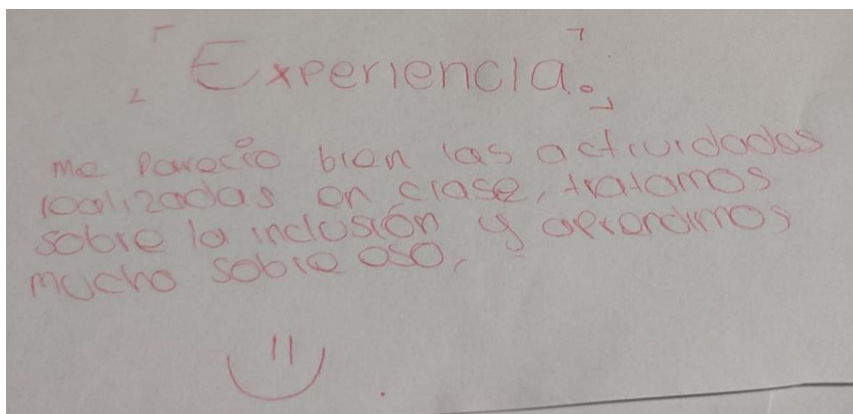 Experiencia.
me parecio bien las actividades
realizadas en clase, tratamos
sobre la inclusión y aprendimos
mucho sobre eso,